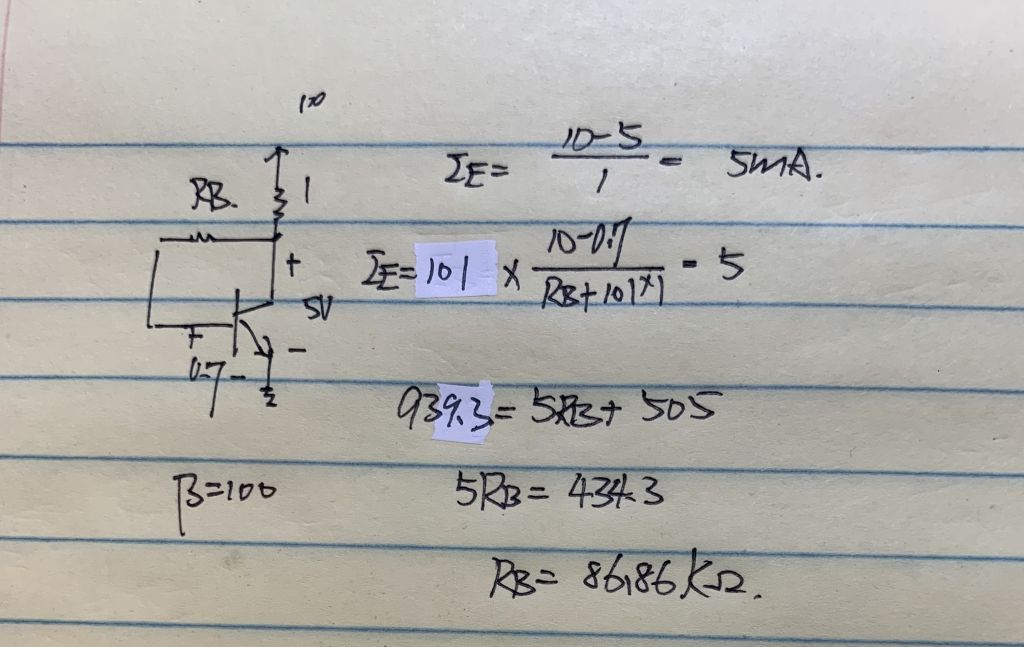 10
RB.
1
+
5V
-
+
0.7 -
β=100
IE= 10-5 / 1 = 5mA.
IE= 101 × 10-0.7 / RB+101×1 = 5
939.3= 5RB+ 505
5RB= 434.3
RB= 86.86 kΩ.